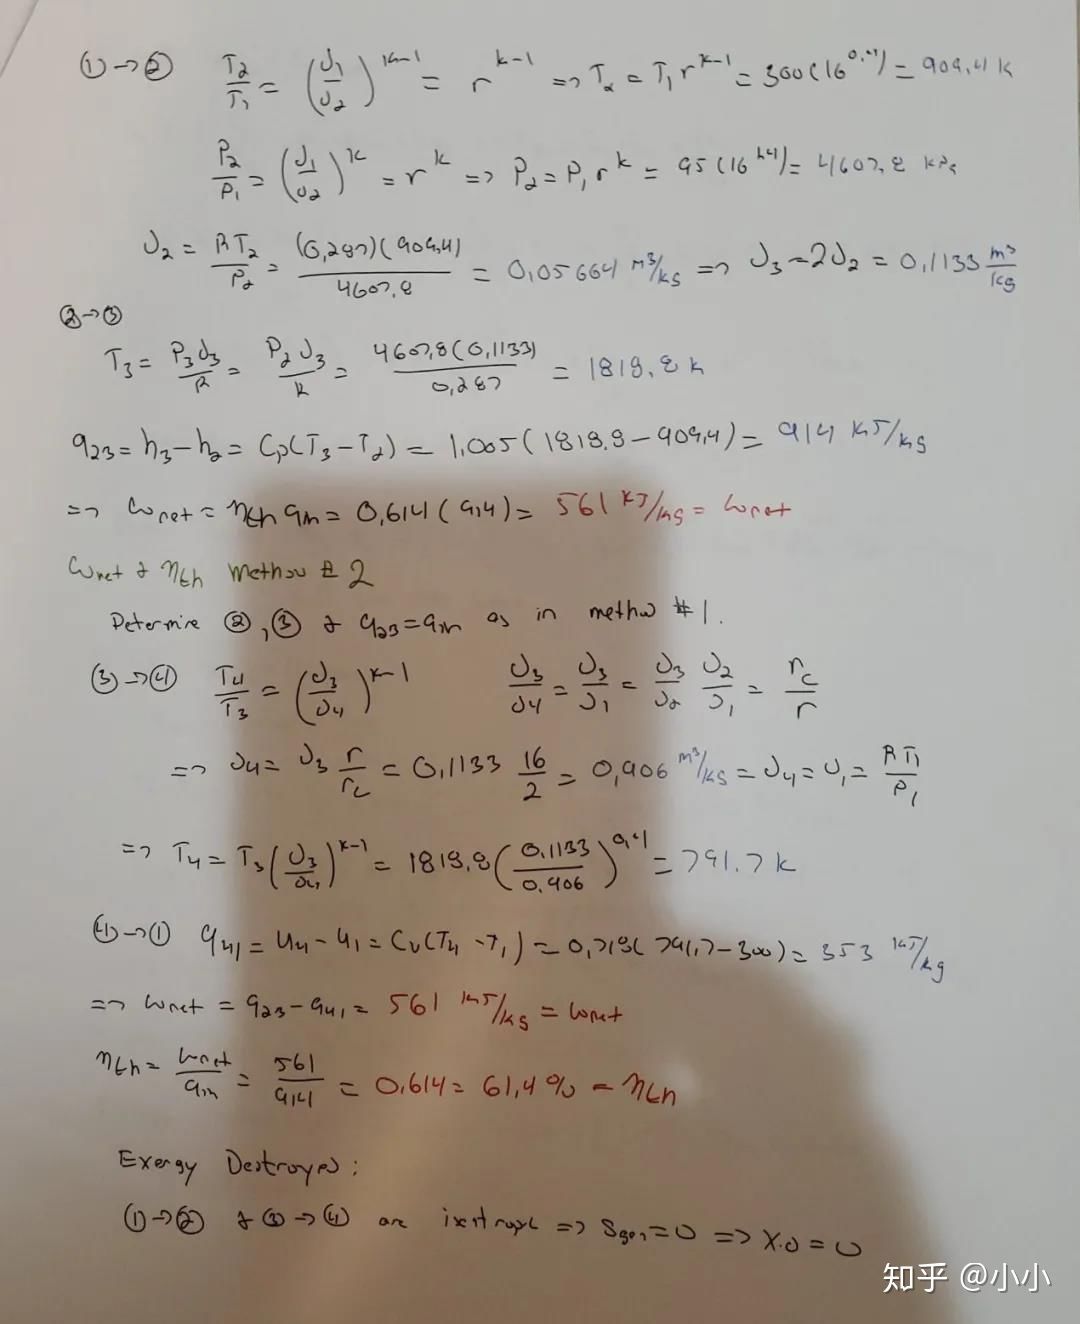 ① → ② T₂/T₁ = (υ₁/υ₂)^(k-1) = r^(k-1) => T₂ = T₁ r^(k-1) = 300(16^0.4) = 909,4 K
P₂/P₁ = (υ₁/υ₂)^k = r^k => P₂ = P₁ r^k = 95(16^1.4) = 4607,8 kPa
υ₂ = RT₂/P₂ = (0,287)(909,4)/4607,8 = 0,05664 m³/kg => υ₃ = 2υ₂ = 0,1133 m³/kg
② → ③
T₃ = P₃υ₃/R = P₂υ₃/R = 4607,8(0,1133)/0,287 = 1818,8 k
q₂₃ = h₃ - h₂ = Cp(T₃ - T₂) = 1,005(1818,8 - 909,4) = 914 KJ/kg
=> ωnet = ηth qin = 0,614(914) = 561 KJ/kg = ωnet
ωnet & ηth Method # 2
Determine ②, ③ & q₂₃ = qin as in method #1.
③ → ④ T₄/T₃ = (υ₃/υ₄)^(k-1) υ₃/υ₄ = υ₃/υ₁ = υ₃/υ₂ υ₂/υ₁ = rc/r
=> υ₄ = υ₃ r/rc = 0,1133 16/2 = 0,906 m³/kg = υ₄ = υ₁ = RT₁/P₁
=> T₄ = T₃(υ₃/υ₄)^(k-1) = 1818,8(0.1133/0.906)^0,4 = 791.7 k
④ → ① q₄₁ = u₄ - u₁ = Cv(T₄ - T₁) = 0,718(791,7 - 300) = 353 KJ/kg
=> ωnet = q₂₃ - q₄₁ = 561 KJ/kg = ωnet
ηth = ωnet/qin = 561/914 = 0,614 = 61,4% = ηth
Exergy Destroyed:
① → ② & ③ → ④ are isentropic => Sgen = 0 => X.D = 0
知乎 @小小